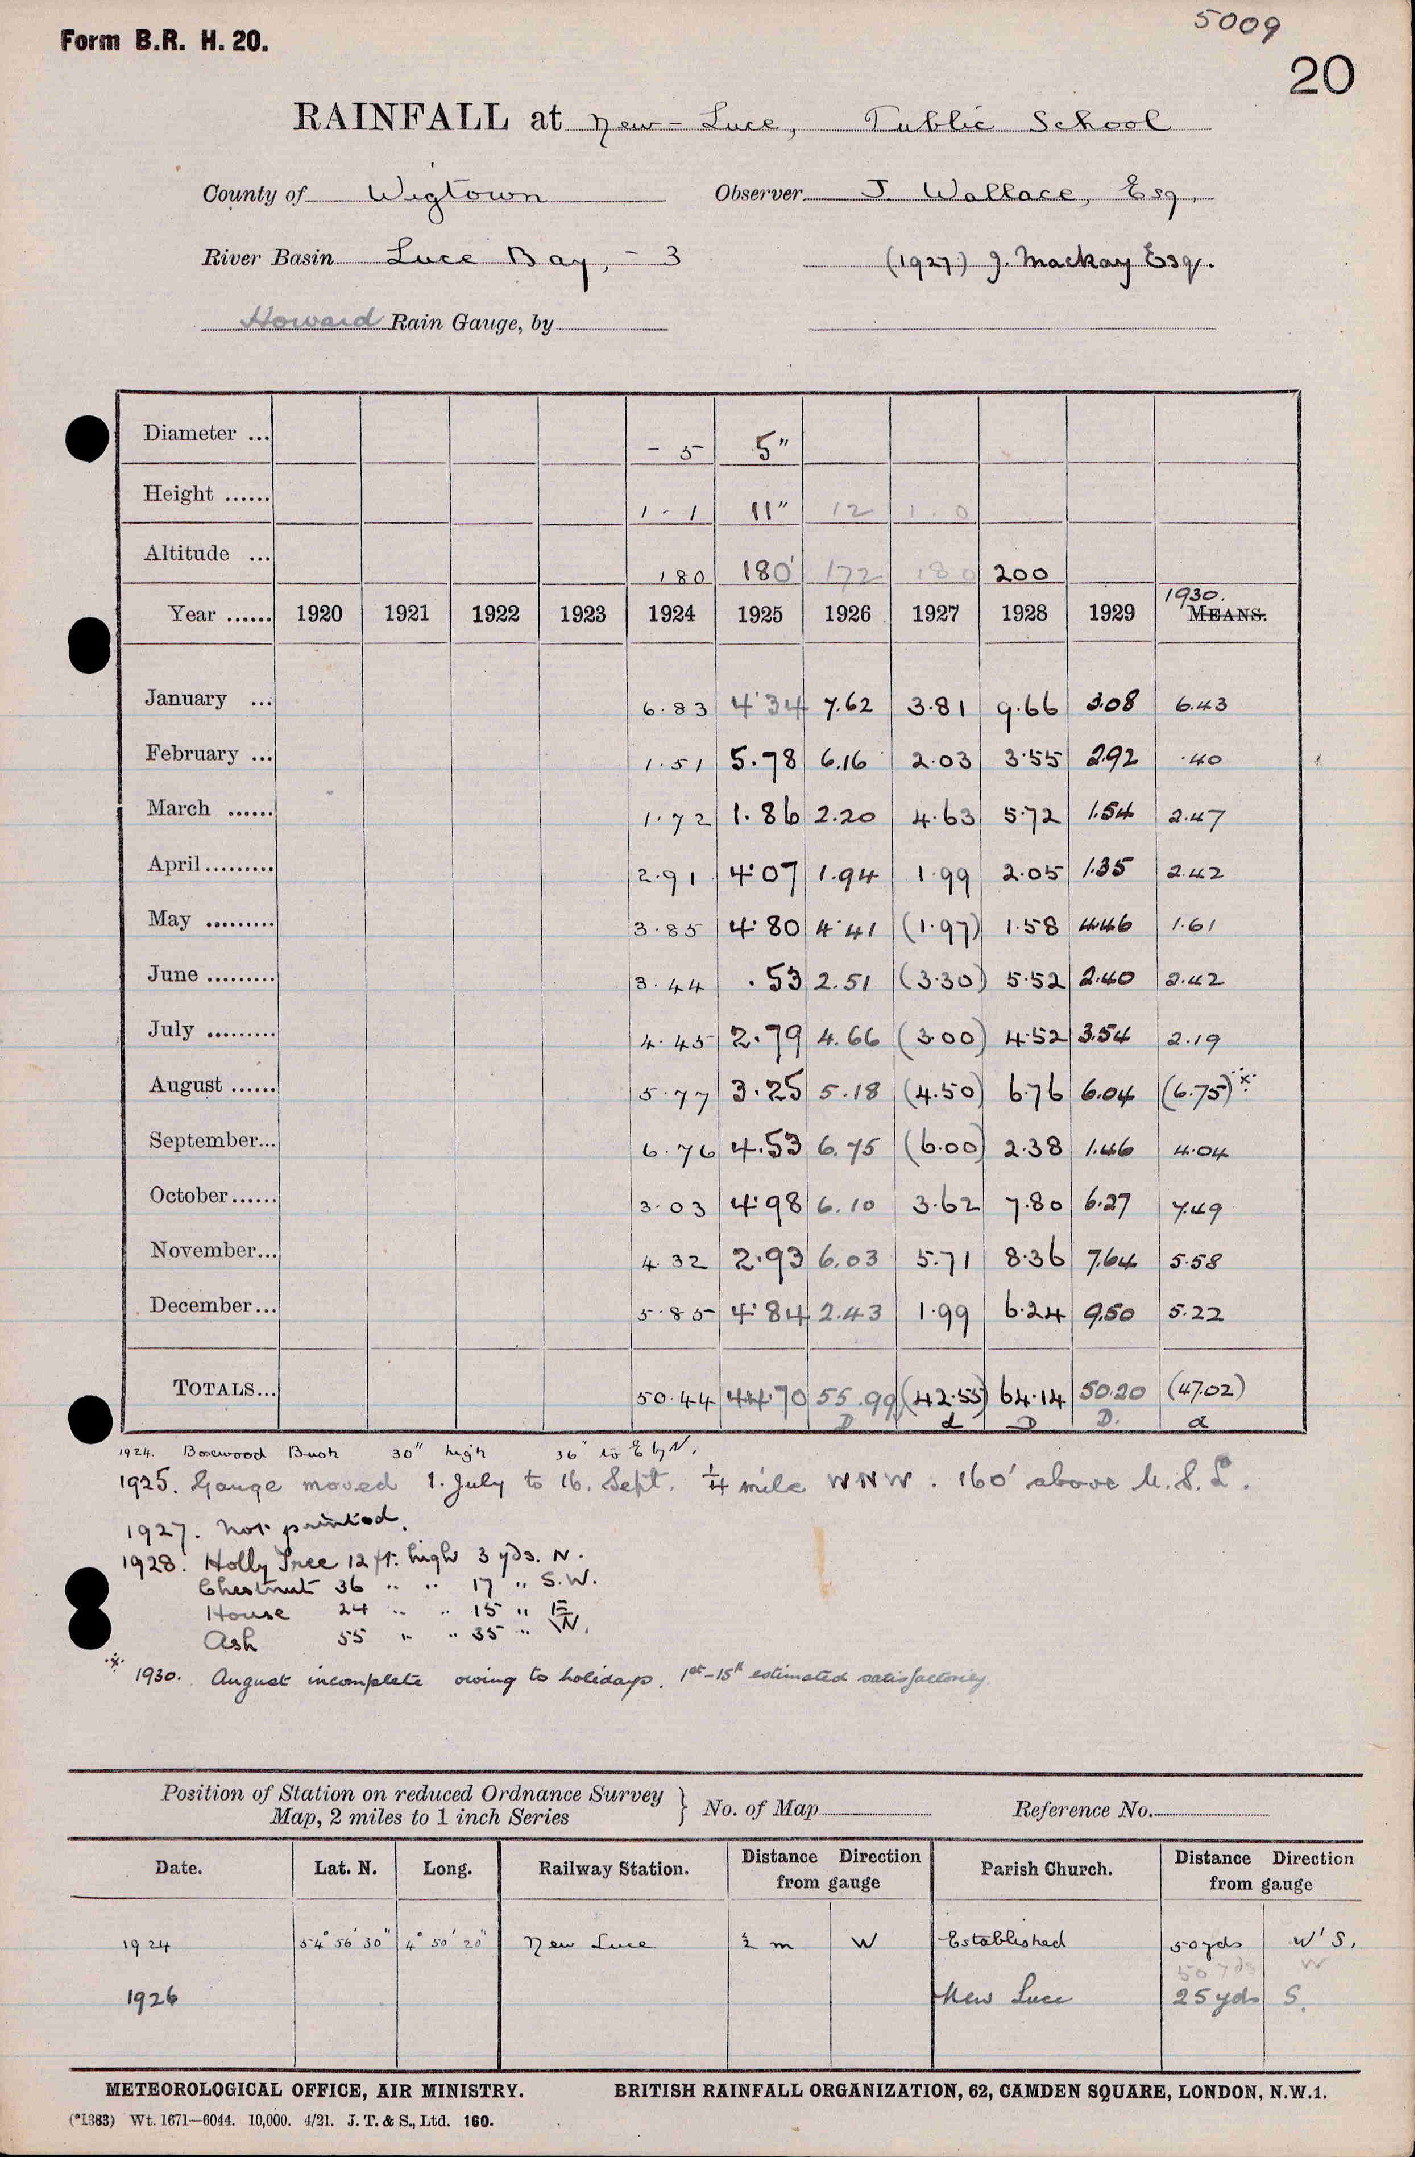 5009
Form B.R. H. 20.
20
RAINFALL at New-Luce, Public School
County of Wigtown Observer J. Wallace, Esq.
River Basin Luce Bay, - 3 (1927) J. Mackay Esq.
Howard Rain Gauge, by
Diameter ... - 5 5"
Height ...... 1 - 1 11" 12 1.0
Altitude ... 180 180' 172 180 200
1930.
Year ...... 1920 1921 1922 1923 1924 1925 1926 1927 1928 1929 MEANS.
January ... 6.83 4.34 7.62 3.81 9.66 3.08 6.43
February ... 1.51 5.78 6.16 2.03 3.55 2.92 .40
March ...... 1.72 1.86 2.20 4.63 5.72 1.54 2.47
April ......... 2.91 4.07 1.94 1.99 2.05 1.35 2.42
May ......... 3.85 4.80 4.41 (1.97) 1.58 4.46 1.61
June ......... 3.44 .53 2.51 (3.30) 5.52 2.40 2.42
July ......... 4.45 2.79 4.66 (3.00) 4.52 3.54 2.19
August ...... 5.77 3.25 5.18 (4.50) 6.76 6.04 (6.75)*
September... 6.76 4.53 6.75 (6.00) 2.38 1.46 4.04
October ...... 3.03 4.98 6.10 3.62 7.80 6.27 7.49
November... 4.32 2.93 6.03 5.71 8.36 7.64 5.58
December... 5.85 4.84 2.43 1.99 6.24 9.50 5.22
TOTALS... 50.44 44.70 55.99 (42.55) 64.14 50.20 (47.02)
D d D D. d
1924. Boxwood Bush 30" high 36' to E by N.
1925. Gauge moved 1. July to 16. Sept. ¼ mile WNW. 160' above M.S.L.
1927. Not printed.
1928. Holly Tree 12 ft. high 3 yds. N.
Chestnut 36 " " 17 " S.W.
House 24 " " 15 " E
Ash 55 " " 35 " W.
* 1930. August incomplete owing to holidays. 1st-15th estimated satisfactorily.
Position of Station on reduced Ordnance Survey
Map, 2 miles to 1 inch Series } No. of Map Reference No.
Date. Lat. N. Long. Railway Station. Distance Direction from gauge Parish Church. Distance Direction from gauge
1924 54° 56' 30" 4° 50' 20" New Luce ½ m W Established 50 yds W'S.
50 yds W
1926 New Luce 25 yds S.
METEOROLOGICAL OFFICE, AIR MINISTRY. BRITISH RAINFALL ORGANIZATION, 62, CAMDEN SQUARE, LONDON, N.W.1.
(*1383) Wt. 1671—6044. 10,000. 4/21. J. T. & S., Ltd. 160.